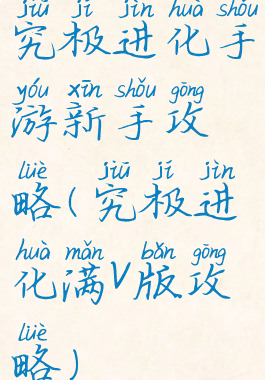 jiū jí jìn huà shǒu
究极进化手
yóu xīn shǒu gōng
游新手攻
lüè jiū jí jìn
略(究极进
huà mǎn bǎn gōng
化满V版攻
lüè
略)